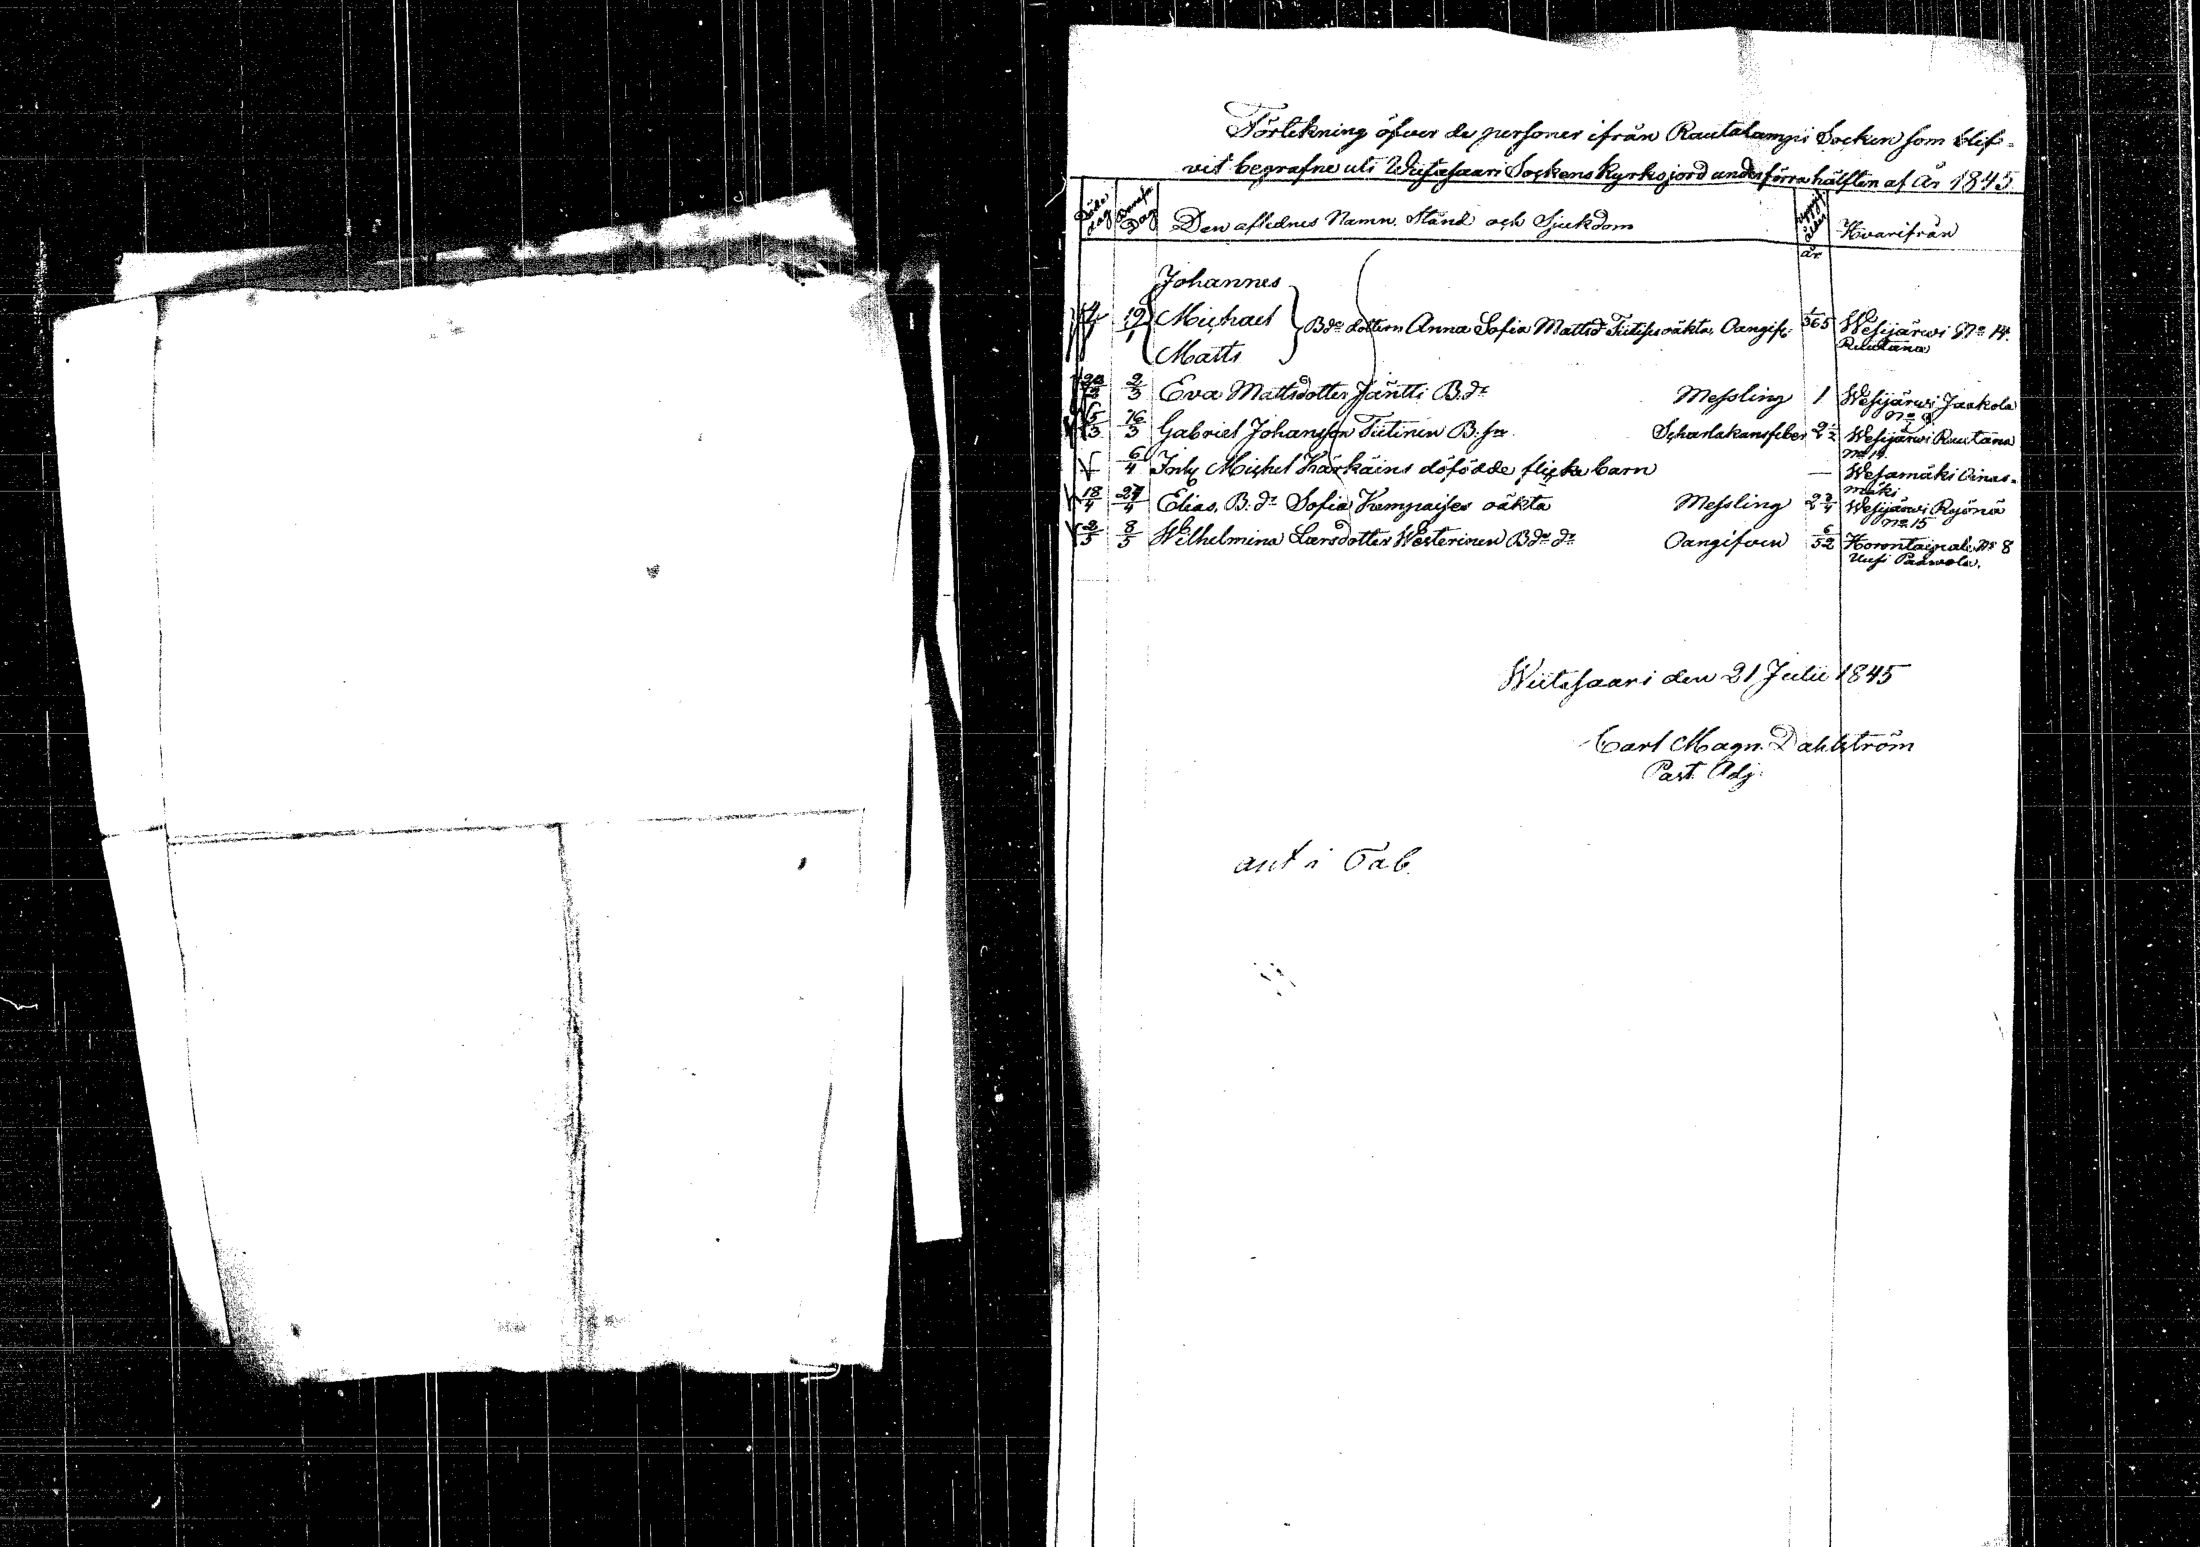 Förtekning öfver de personer ifrån Rautalampi Socken som blif-
vit begrafne uti Wiitasaari Sockens Kyrkojord under förra hälften af År 1845
Döds dag Begrafn. Dag Den aflednes Namn, Stånd och Sjukdom ålder Hvarifrån
år
Johannes
19/1 Michael Bde dottern Anna Sofia Mattsd Tiitises oäkta, Oangifv. 1/365 Wesijärwi No 14.
Matts Rautana
2/3 Eva Mattsdotter Jäntti B.dr Messling 1 Wesijärwi Jaakola
No 9
15/3 16/3 Gabriel Johansson Tiitinen B. sn Scharlakansfeber 2 1/2 Wesijärwi Rautana
No 14
6/4 Inh Michel Kärkäins döfödde flicke barn — Wesamäki Oinas-
mäki
18/4 27/4 Elias, B. dr Sofia Kumpaises oäkta Messling 2 3/4 Wesijärwi Ryönä
No 15
2/5 8/5 Wilhelmina Larsdotter Westerinen Bde dr Oangifven 6/52 Horontaipale No 8
Uusi Paawola.
Wiitasaari den 21 Julii 1845
Carl Magn. Dahlström
Past. Adj.
ant i Tab.